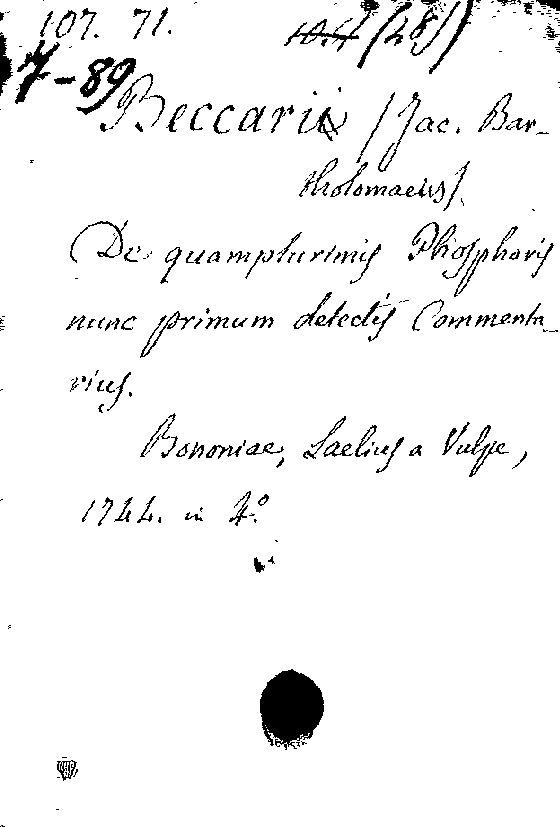 107. 71. 10.4 (28)
7-89
Beccarii (Jac. Bar-
tholomaeus).
De quamplurimis Phosphoris
nunc primum detectis Commenta-
rius.
Bononiae, Laelius a Vulpe,
1744. in 4°.